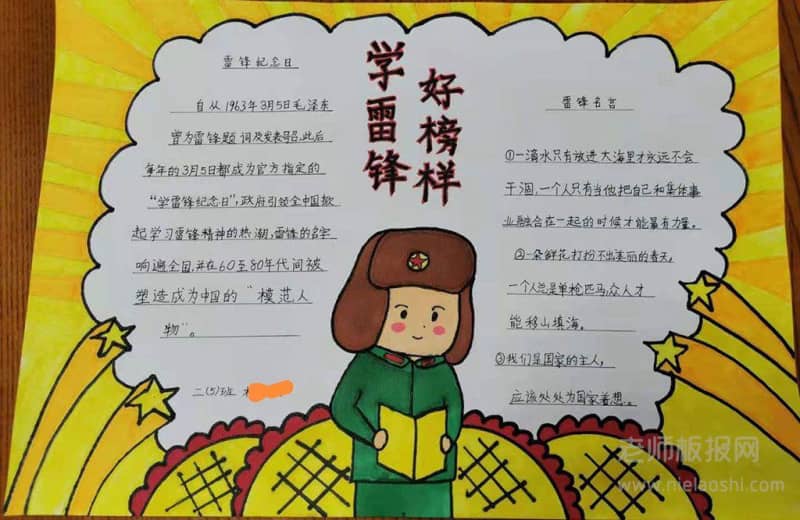 学雷锋
好榜样
雷锋纪念日
自从1963年3月5日毛泽东
曾为雷锋题词及发表号召,此后
每年的3月5日都成为官方指定的
“学雷锋纪念日”,政府引领全中国掀
起学习雷锋精神的热潮,雷锋的名字
响遍全国,并在60至80年代间被
塑造成为中国的“模范人
物”。
二(5)班
雷锋名言
①一滴水只有放进大海里才永远不会
干涸,一个人只有当他把自己和集体事
业融合在一起的时候才能最有力量。
②一朵鲜花打扮不出美丽的春天,
一个人总是单枪匹马,众人才
能移山填海。
③我们是国家的主人,
应该处处为国家着想。
老师板报网
www.nielaoshi.com